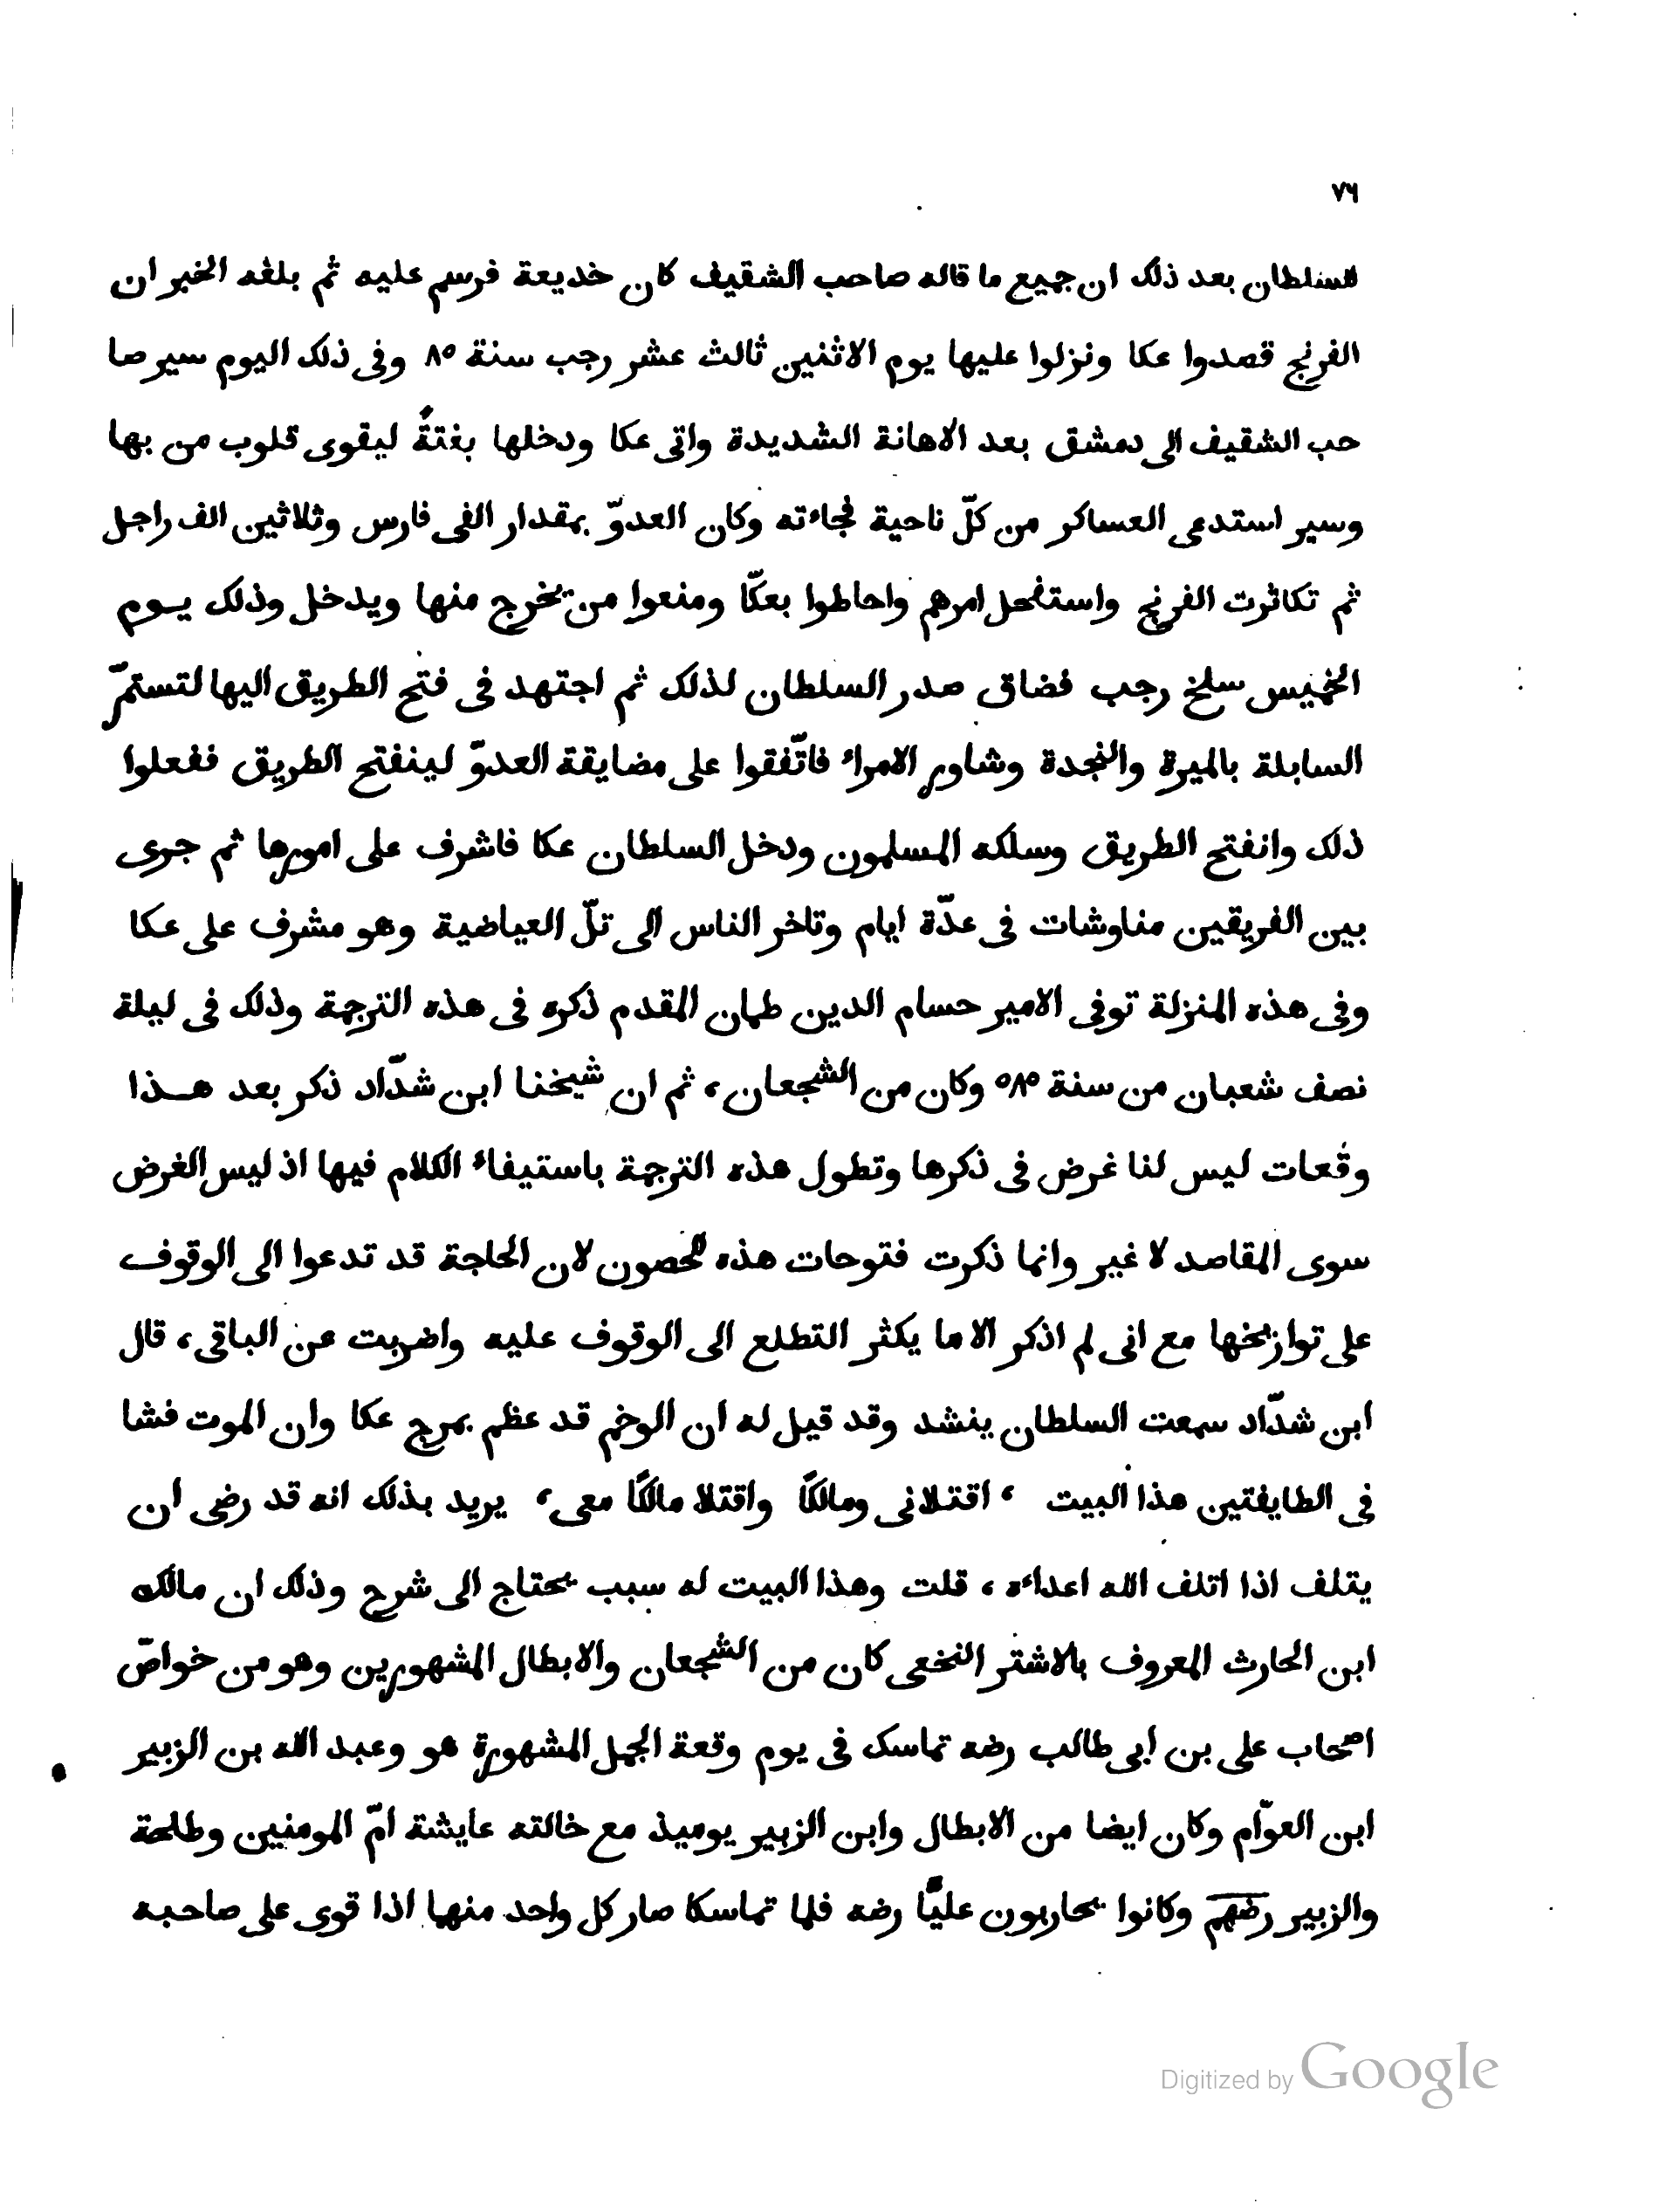 ٧٦
للسلطان بعد ذلك ان جميع ما قاله صاحب الشقيف كان خديعة فرسم عليه ثم بلغه الخبر ان
الفرنج قصدوا عكا ونزلوا عليها يوم الاثنين ثالث عشر رجب سنة ٨٥ وفى ذلك اليوم سير صا
حب الشقيف الى دمشق بعد الاهانة الشديدة واتى عكا ودخلها بغتةً ليقوى قلوب من بها
وسير استدعى العساكر من كلّ ناحية فجاءته وكان العدوّ بمقدار الفى فارس وثلاثين الف راجل
ثم تكاثرت الفرنج واستفحل امرهم واحاطوا بعكّا ومنعوا من يخرج منها ويدخل وذلك يـوم
الخميس سلخ رجب فضاق صدر السلطان لذلك ثم اجتهد فى فتح الطريق اليها لتستمرّ
السابلة بالميرة والنجدة وشاور الامراء فاتّفقوا على مضايقة العدوّ لينفتح الطريق ففعلوا
ذلك وانفتح الطريق وسلكه المسلمون ودخل السلطان عكا فاشرف على امورها ثم جرى
بين الفريقين مناوشات فى عدّة ايام وتاخر الناس الى تلّ العياضية وهو مشرف على عكا
وفى هذه المنزلة توفى الامير حسام الدين طمان المقدم ذكره فى هذه الترجمة وذلك فى ليلة
نصف شعبان من سنة ٥٨٥ وكان من الشجعان، ثم ان شيخنا ابن شدّاد ذكر بعد هـذا
وقعات ليس لنا غرض فى ذكرها وتطول هذه الترجمة باستيفاء الكلام فيها اذ ليس الغرض
سوى المقاصد لا غير وانما ذكرت فتوحات هذه الحصون لان الحاجة قد تدعوا الى الوقوف
على تواريخها مع انى لم اذكر الا ما يكثر التطلع الى الوقوف عليه واضربت عن الباقى، قال
ابن شدّاد سمعت السلطان ينشد وقد قيل له ان الوخم قد عظم بمرج عكا وان الموت فشا
فى الطايفتين هذا البيت ، اقتلانى ومالكًا واقتلا مالكًا معى، يريد بذلك انه قد رضى ان
يتلف اذا اتلف الله اعداءه، قلت وهذا البيت له سبب يحتاج الى شرح وذلك ان مالك
ابن الحارث المعروف بالاشتر النخعى كان من الشجعان والابطال المشهورين وهو من خواصّ
اصحاب على بن ابى طالب رضه تماسك فى يوم وقعة الجمل المشهورة هو وعبد الله بن الزبير
ابن العوّام وكان ايضا من الابطال وابن الزبير يوميذ مع خالته عايشة امّ المومنين وطلحة
والزبير رضهم وكانوا يحاربون عليًّا رضه فلما تماسكا صار كل واحد منهما اذا قوى على صاحبه
Digitized by Google